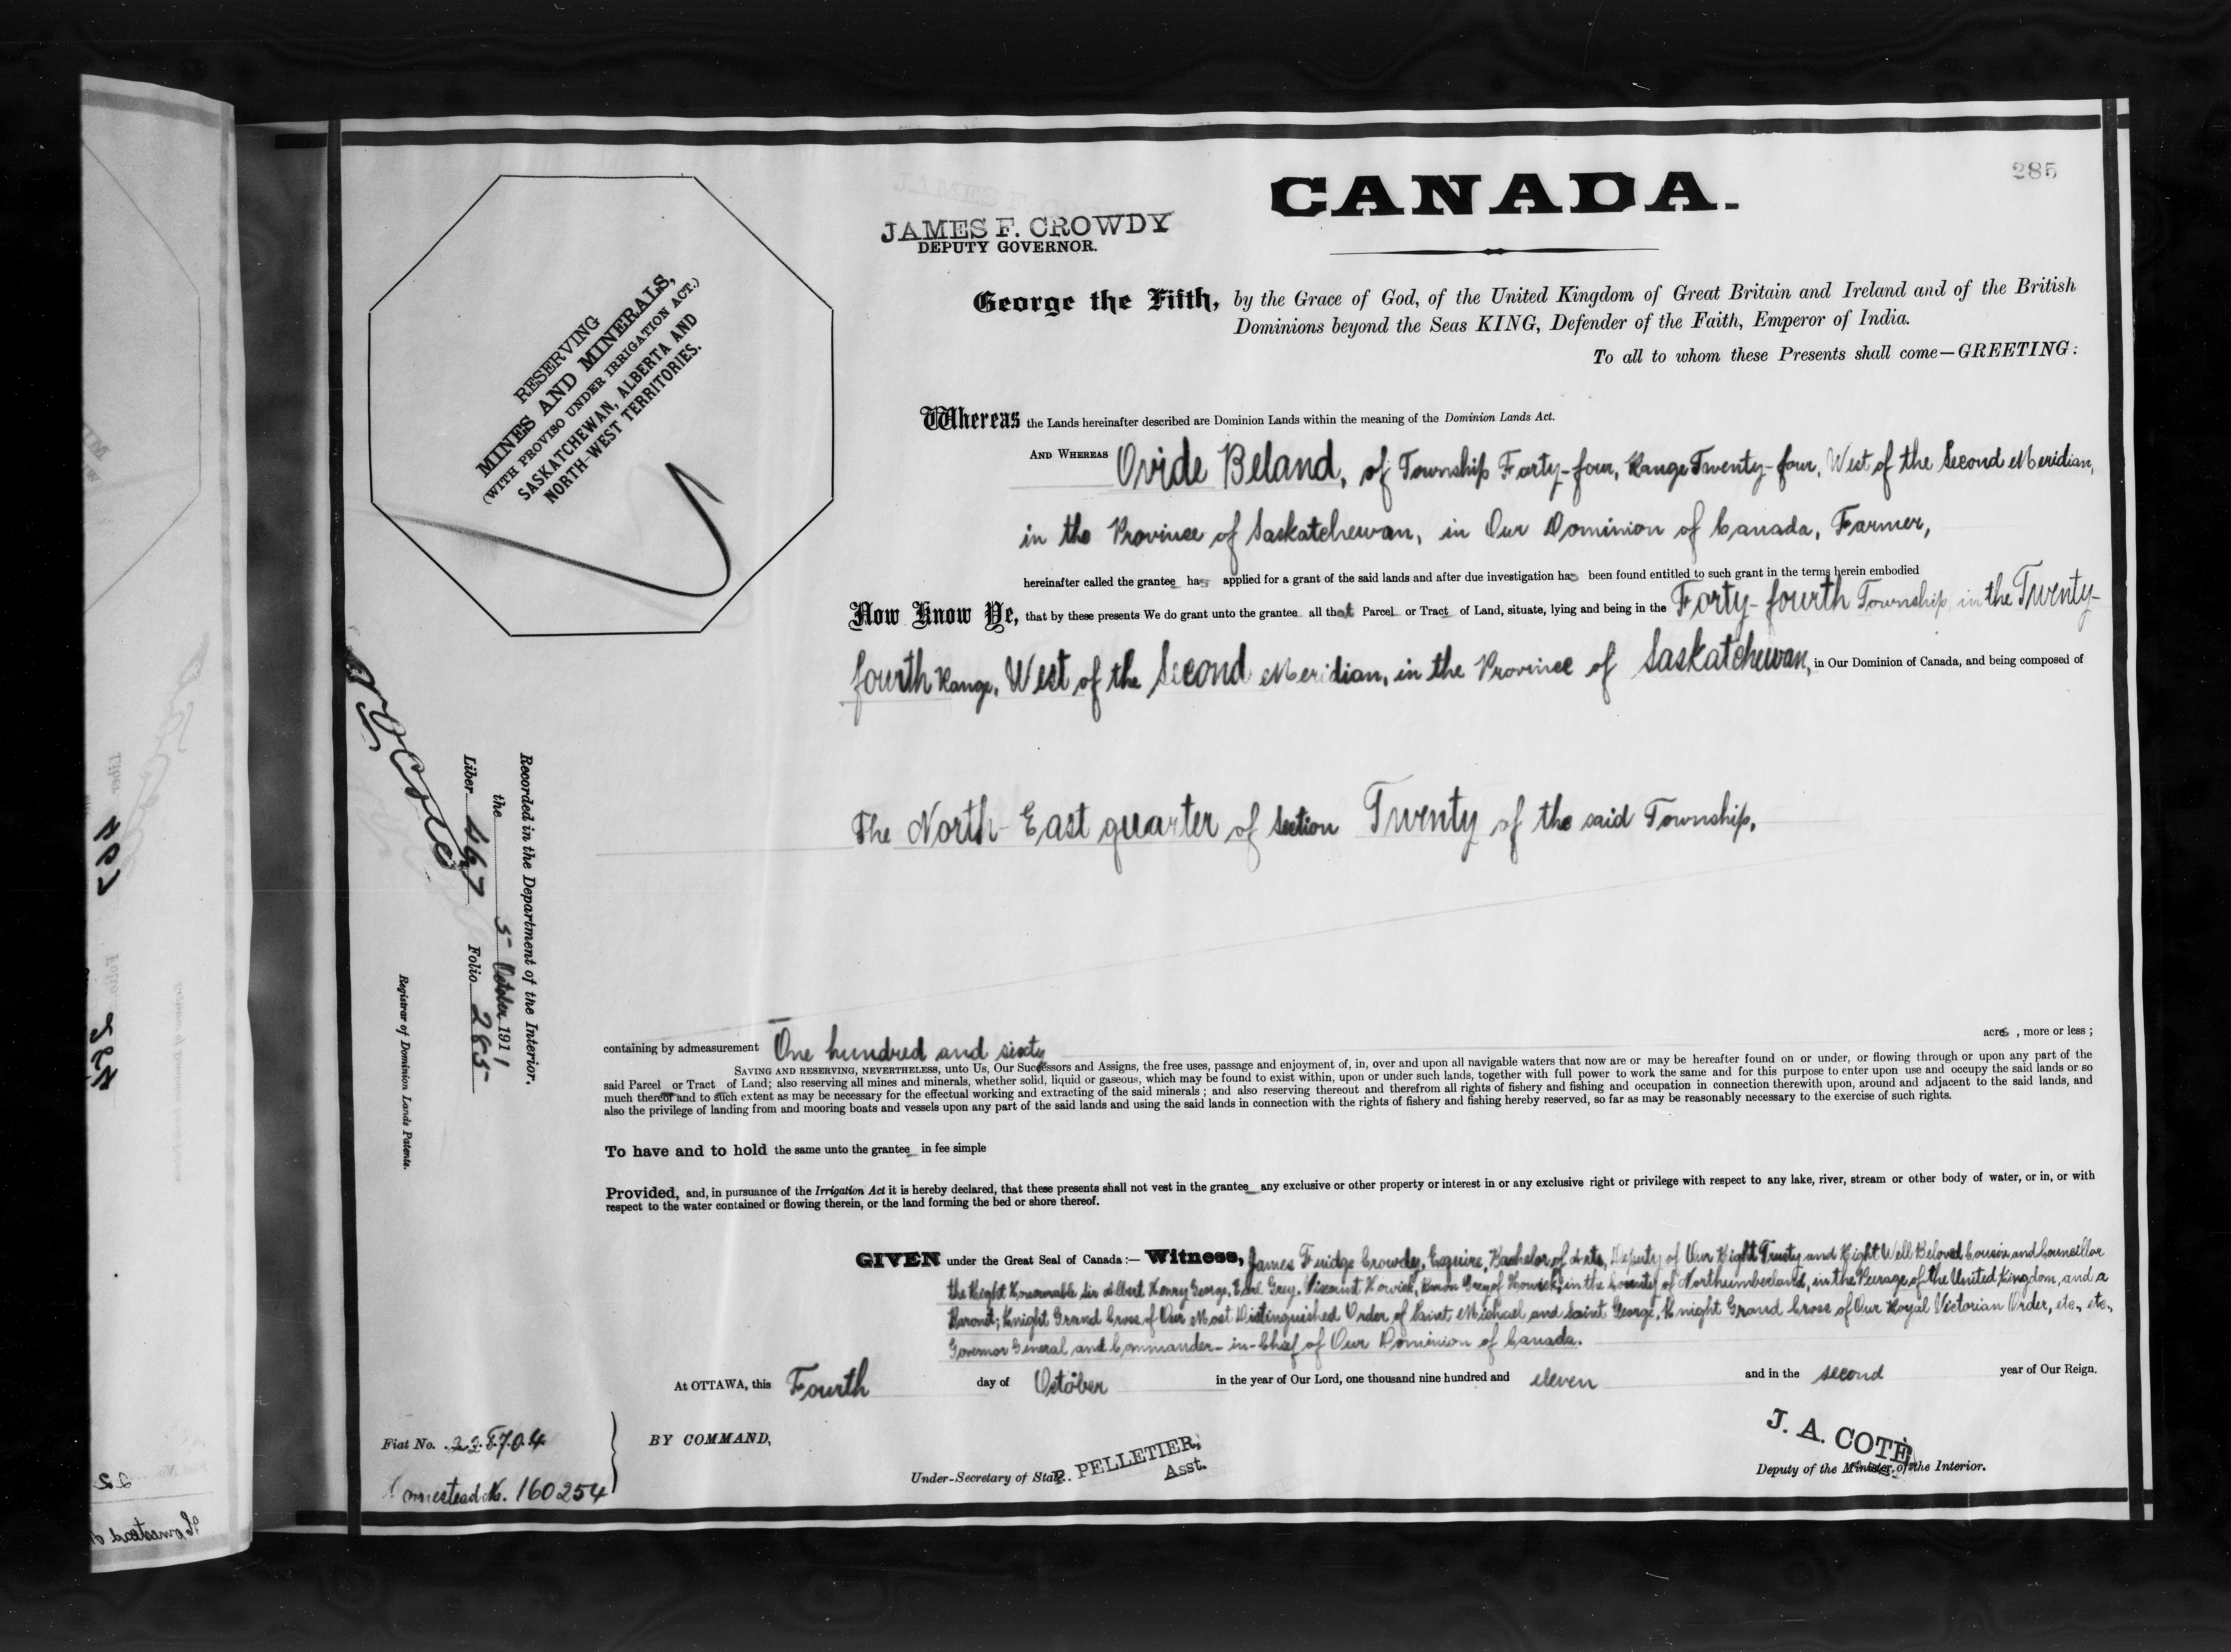 285
CANADA.
JAMES F. CROWDY
DEPUTY GOVERNOR.
RESERVING
MINES AND MINERALS,
(WITH PROVISO UNDER IRRIGATION ACT.)
SASKATCHEWAN, ALBERTA AND
NORTH-WEST TERRITORIES.
George the Fifth, by the Grace of God, of the United Kingdom of Great Britain and Ireland and of the British
Dominions beyond the Seas KING, Defender of the Faith, Emperor of India.
To all to whom these Presents shall come—GREETING:
Whereas the Lands hereinafter described are Dominion Lands within the meaning of the Dominion Lands Act.
AND WHEREAS Ovide Beland, of Township Forty-four, Range Twenty-four, West of the Second Meridian,
in the Province of Saskatchewan, in Our Dominion of Canada, Farmer,
hereinafter called the grantee has applied for a grant of the said lands and after due investigation has been found entitled to such grant in the terms herein embodied
Now Know Ye, that by these presents We do grant unto the grantee all that Parcel or Tract of Land, situate, lying and being in the Forty-fourth Township, in the Twenty-
fourth Range, West of the Second Meridian, in the Province of Saskatchewan, in Our Dominion of Canada, and being composed of
The North-East quarter of Section Twenty of the said Township,
Recorded in the Department of the Interior.
the 5 October 1911
Liber 467 Folio 285
Registrar of Dominion Lands Patents.
containing by admeasurement One hundred and sixty acres, more or less;
SAVING AND RESERVING, NEVERTHELESS, unto Us, Our Successors and Assigns, the free uses, passage and enjoyment of, in, over and upon all navigable waters that now are or may be hereafter found on or under, or flowing through or upon any part of the
said Parcel or Tract of Land; also reserving all mines and minerals, whether solid, liquid or gaseous, which may be found to exist within, upon or under such lands, together with full power to work the same and for this purpose to enter upon use and occupy the said lands or so
much thereof and to such extent as may be necessary for the effectual working and extracting of the said minerals; and also reserving thereout and therefrom all rights of fishery and fishing and occupation in connection therewith upon, around and adjacent to the said lands, and
also the privilege of landing from and mooring boats and vessels upon any part of the said lands and using the said lands in connection with the rights of fishery and fishing hereby reserved, so far as may be reasonably necessary to the exercise of such rights.
To have and to hold the same unto the grantee in fee simple
Provided, and, in pursuance of the Irrigation Act it is hereby declared, that these presents shall not vest in the grantee any exclusive or other property or interest in or any exclusive right or privilege with respect to any lake, river, stream or other body of water, or in, or with
respect to the water contained or flowing therein, or the land forming the bed or shore thereof.
GIVEN under the Great Seal of Canada:— Witness, James Fridge Crowdy, Esquire, Bachelor of Arts, Deputy of Our Right Trusty and Right Well Beloved Cousin and Councillor
the Right Honourable Sir Albert Henry George, Earl Grey, Viscount Howick, Baron Grey of Howick, in the County of Northumberland, in the Peerage of the United Kingdom, and a
Baronet; Knight Grand Cross of Our Most Distinguished Order of Saint Michael and Saint George, Knight Grand Cross of Our Royal Victorian Order, etc., etc.,
Governor General and Commander-in-Chief of Our Dominion of Canada.
At OTTAWA, this Fourth day of October in the year of Our Lord, one thousand nine hundred and eleven and in the second year of Our Reign.
Fiat No. 228704
BY COMMAND,
Homestead No. 160254
P. PELLETIER,
Asst.
Under-Secretary of State.
J. A. COTÉ
Deputy of the Minister of the Interior.